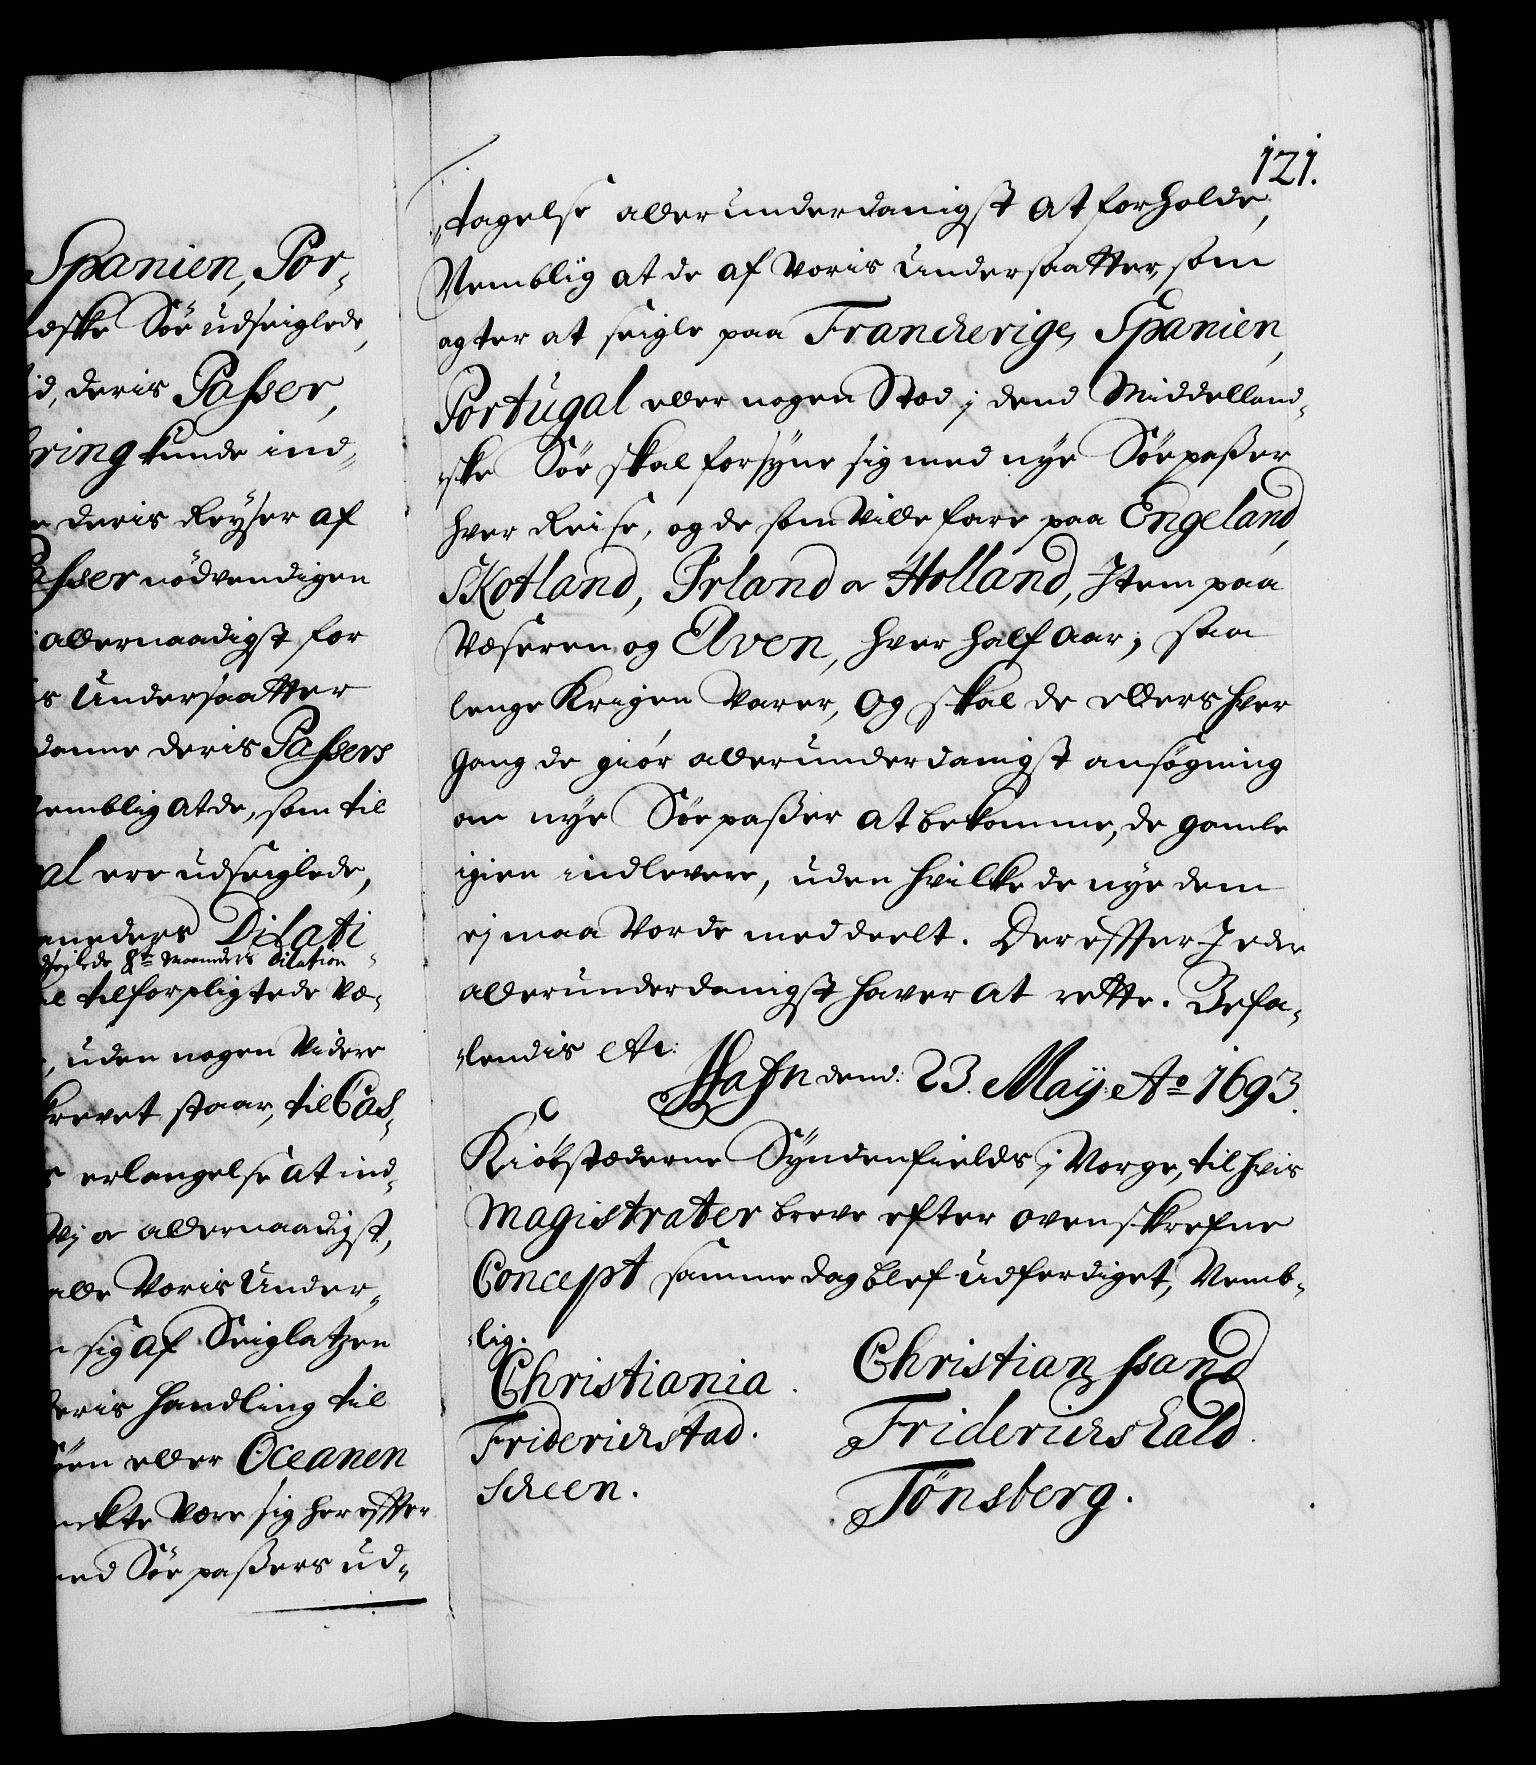 Spanien, Por-
ske Söe udseiglede,
id, deris Passer,
ring kunde ind-
deris Reyser af
Passer nödvendigen
allernaadigst for
is Undersaatter
danne deris Passers
emblig at de, som til
al ere udseiglede,
aneders Dilati-
dseilede 8te Maaneders dilation
tilforpligtede Væ-
, uden nogen Videre
krevet staar, til Cas-
erlangelse at ind-
Vj allernaadigst,
alle Voris Under-
sig af Seiglatzen
deris Handling til
öen eller Oceanen
enckte Være sig herefter
med Söepassers ud-
121.
-tagelse allerunderdanigst at forholde,
Nemblig at de af Voris Undersaatter, som
agter at seigle paa Franckerige, Spanien,
Portugal eller nogen Stæd j dend Middelland-
-ske Söe skal forsyne sig med nye Söepasser
hver Reise, og de som Ville fare paa Engeland,
Skotland, Irland og Holland, Item paa
Væseren og Elven, hver half Aar; saa
lenge Krigen Varer, Og skal de ellers hver
Gang de giör allerunderdanigst ansögning
om nye Söepasser at bekomme, de gamle
igien indlevere, uden hvilke de nye dem
ej maa Vorde meddeelt. Derefter I eder
allerunderdanigst haver at rette. Befa-
-lendis etc:
Hafn dend: 23. Maÿ: Ao 1693.
Kiöbstæderne Syndenfields j Norge, til hvis
Magistrater breve efter ovenskrefne
Concept samme dag blef udferdiget, Nemb-
-lig.
Christiania. Christianssand
Friderichstad. Friderichshald.
Scheen. Tönsberg.